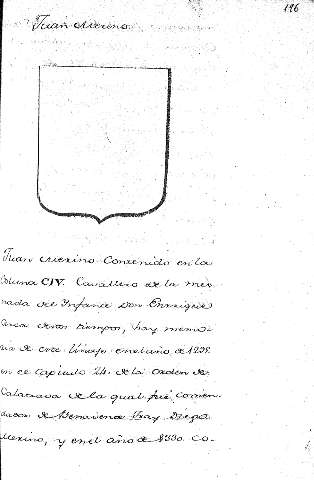 196
Juan Merino
Juan Merino Contenido en la
Coluna CIV. Cavallero de la mes-
nada del Infante Don Enrrique
cerca destos tiempos, hay memo-
ria de este Linaje en el año de
en el Capitulo 24. de la orden de
Calatrava de la qual fué comen-
dador de Benavena Fray Diego
Merino, y en el año de 1330. Co-